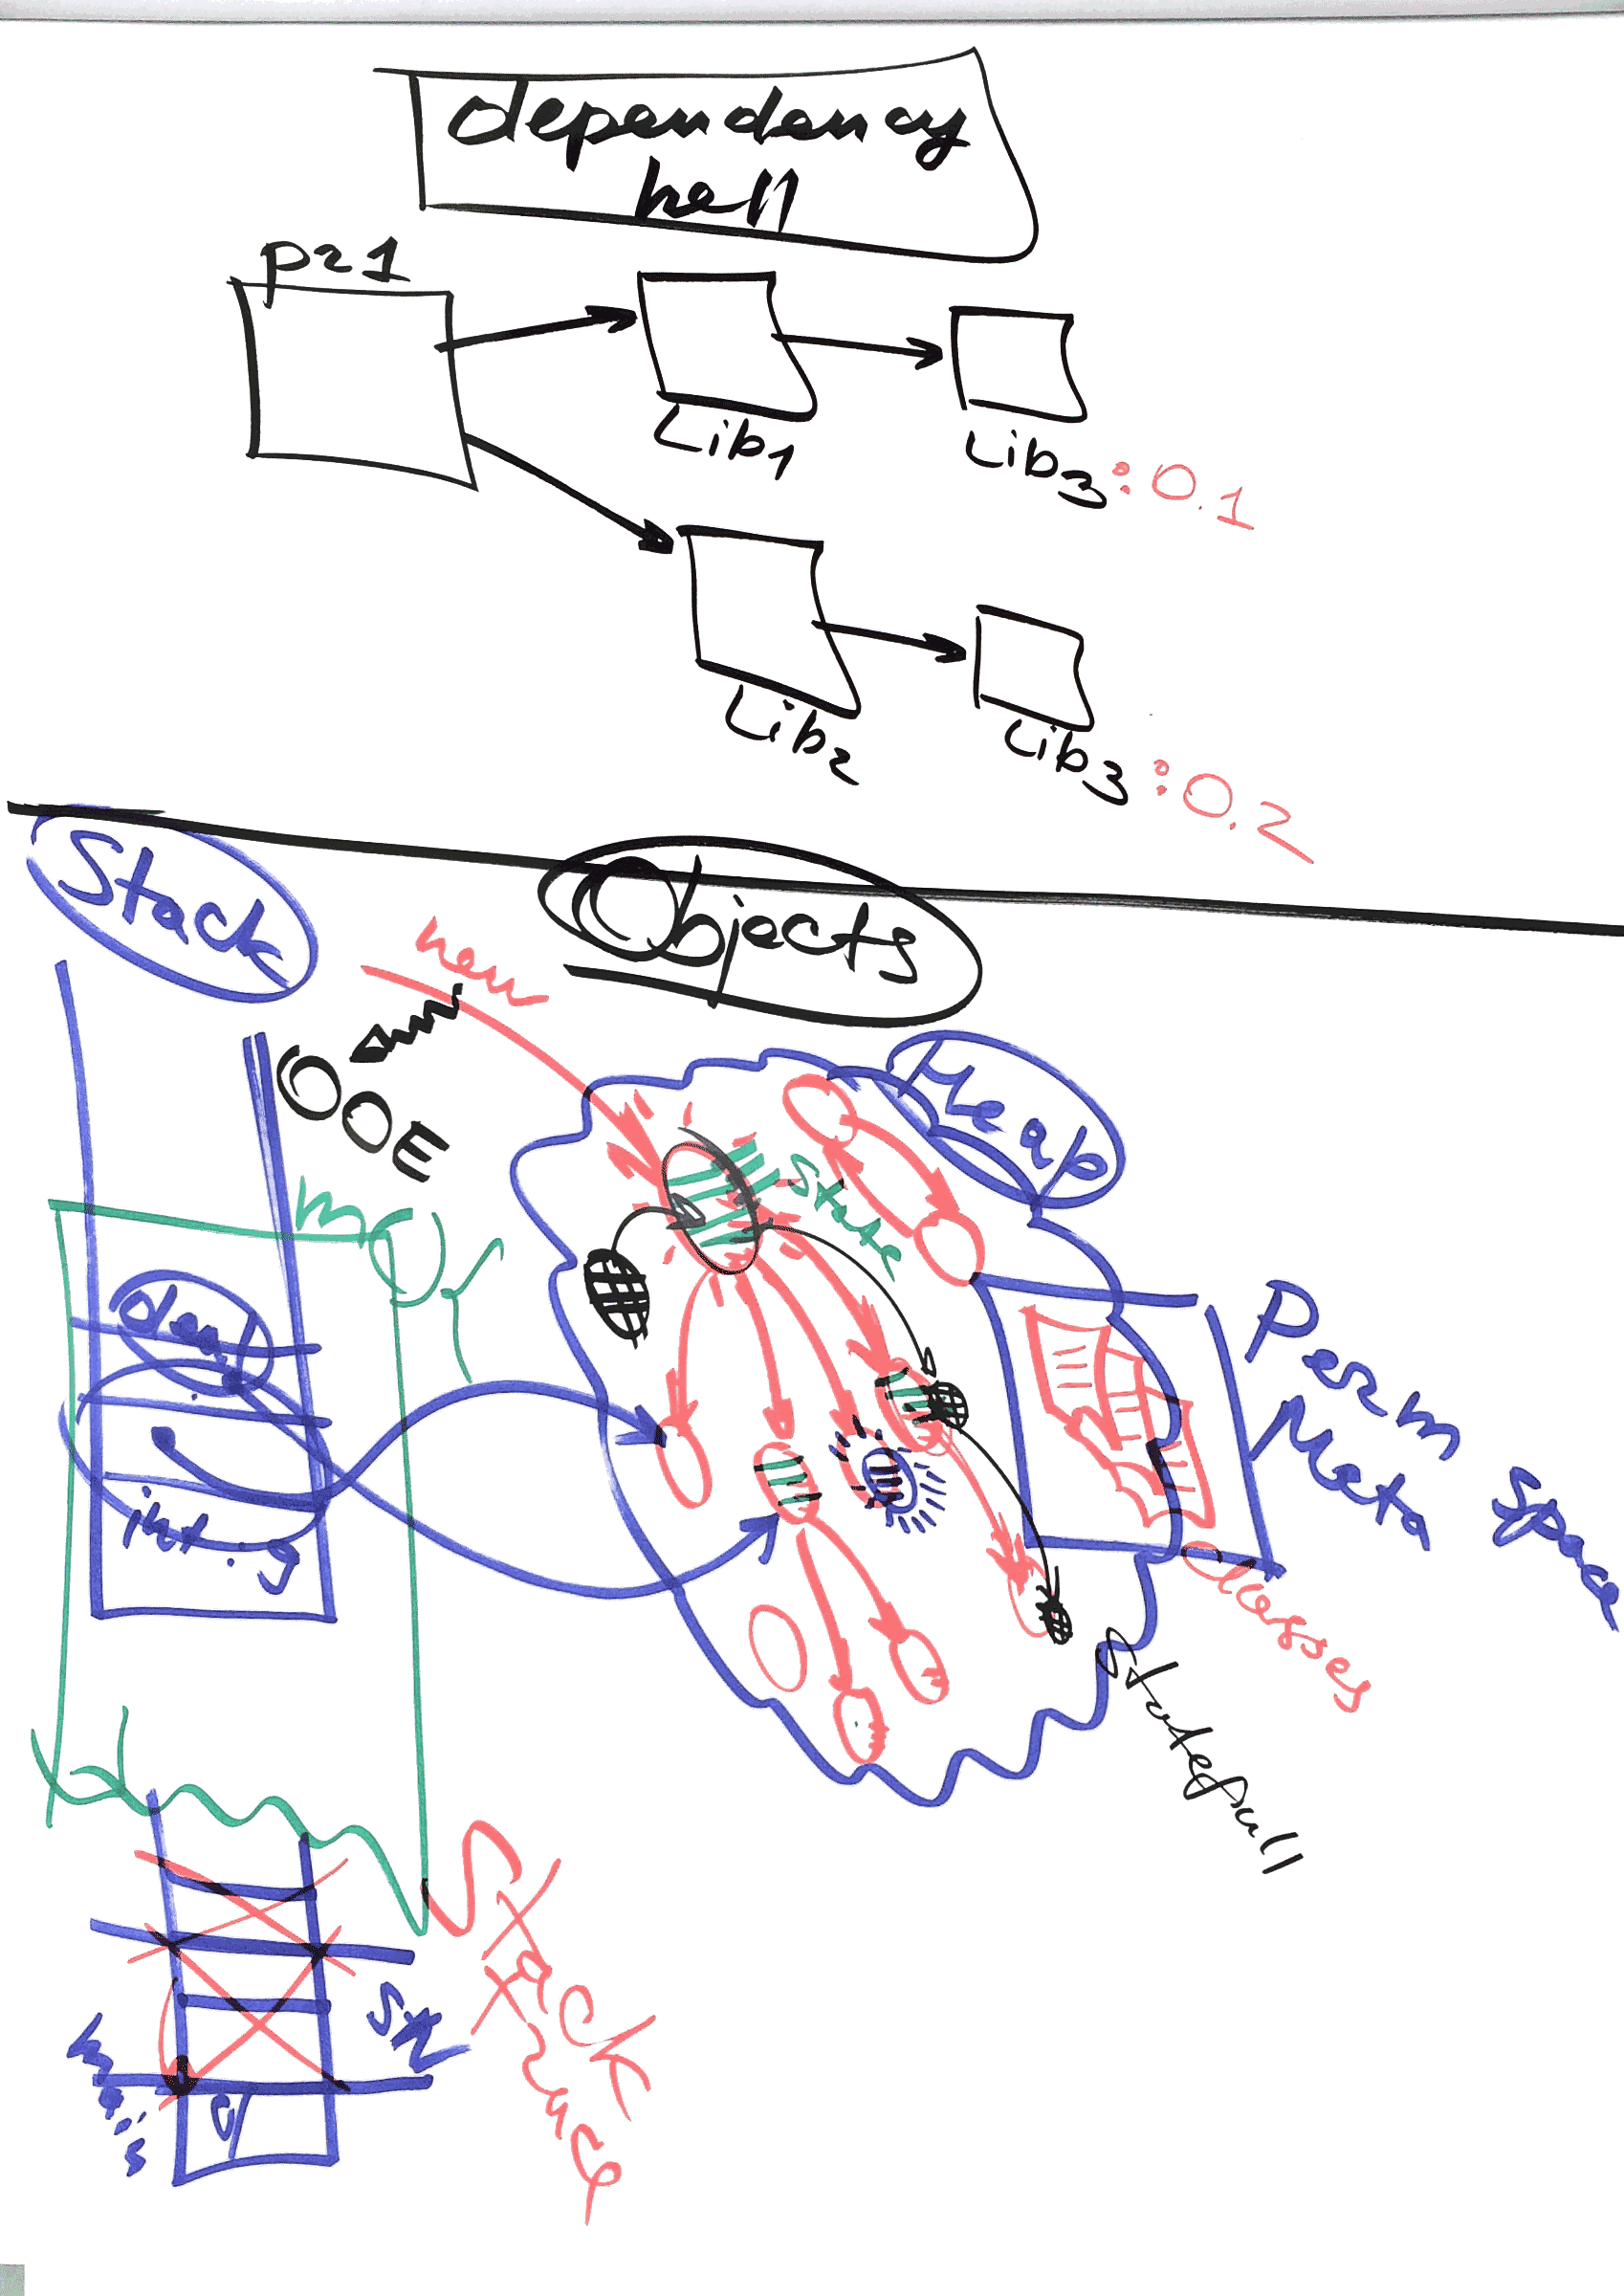 dependency
hell
pz1
Lib1
Lib3:0.1
Lib2
Lib3:0.2
Stack
Objects
new
OOE
Heap
State
int:9
Perm
Meta space
classes
Statefull
Stack
Trace